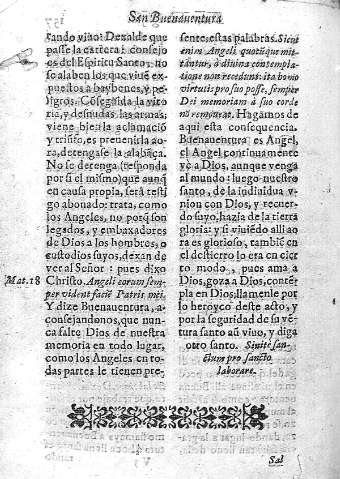 San Buenauentura
tando viuo: Dexalde que
passe la carrera: consejo
es del Espiritu Santo: no
se alaben los que viuē ex-
puestos a baybenes, y pe-
ligros. Cōseguida la vito
ria, y desnudas las armas,
viene biē la aclamació
y trifo, es preuenirla ao-
ra, detengase la alabāça.
No se detenga (responda
por si el mismo) que aunq̄
en causa propia, será testi
go abonado: trata, como
los Angeles, no porq̄ son
legados, y embaxadores
de Dios a los hombres, o
custodios suyos, dexan de
ver al Señor: pues dixo
Mat. 18
Christo. Angeli eorum sem-
per vident faciē Patris mei.
Y dize Buenauentura, a-
consejandonos, que nun-
ca falte Dios de nuestra
memoria en todo lugar,
como los Angeles en to-
das partes le tienen pre-
sente, estas palabras. Sicut
enim Angeli quotūque mit-
tantur, à diuina contempla-
tione non recedunt: ita bono
virtuti: pro suo posse, semper
Dei memoriam à suo corde
nō remouat. Hagamos de
aqui esta consequencia.
Buenauentura es Angel,
el Angel continuamente
ve a Dios, aunque venga
al mundo: luego nuestro
santo, de la indiuidua v-
nion con Dios, y recuer-
do suyo, hazia de la tierra
gloria: y si viuiēdo alli ao
ra es glorioso, tambiē en
el destierro lo era en cier
to modo, pues ama a
Dios, goza a Dios, contē
pla en Dios; llamenle por
lo heroyco deste acto, y
por la seguridad de su vē
tura santo aū viuo, y diga
otro santo. Sinite san-
ctum pro sancto
laborare.
Sal